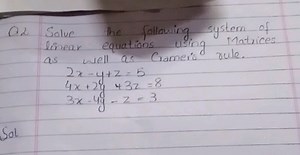 Q2. Solve the following system of
linear equations using Matrices
as well as Cramer's rule.
2x - y + z = 5
4x + 2y + 3z = 8
3x - 4y - z = 3
Sol